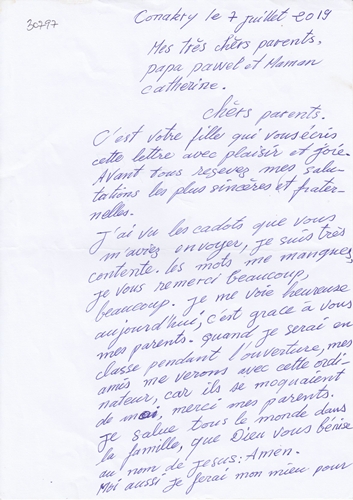 30797
Conakry le 7 juillet 2019
Mes très chèrs parents,
papa pawel et Maman
catherine.
chèrs parents.
C'est votre fille qui vous écris
cette lettre avec plaisir et joie.
Avant tous resevez mes salu-
tations les plus sincères et frater-
nelles.
J'ai vu les cadots que vous
m'aviez envoyer, je suis très
contente. les mots me manques,
je vous remerci beaucoup,
beaucoup. je me voie heureuse
aujourd'hui, c'est grace à vous
mes parents. quand je serai en
classe pendant l'ouverture, mes
amis me verons avec cette ordi-
nateur, car ils se moquaient
de moi, merci mes parents.
je salue tous le monde dans
la famille, que Dieu vous bénise
au nom de jesus. Amen.
Moi aussi je ferai mon mieu pour